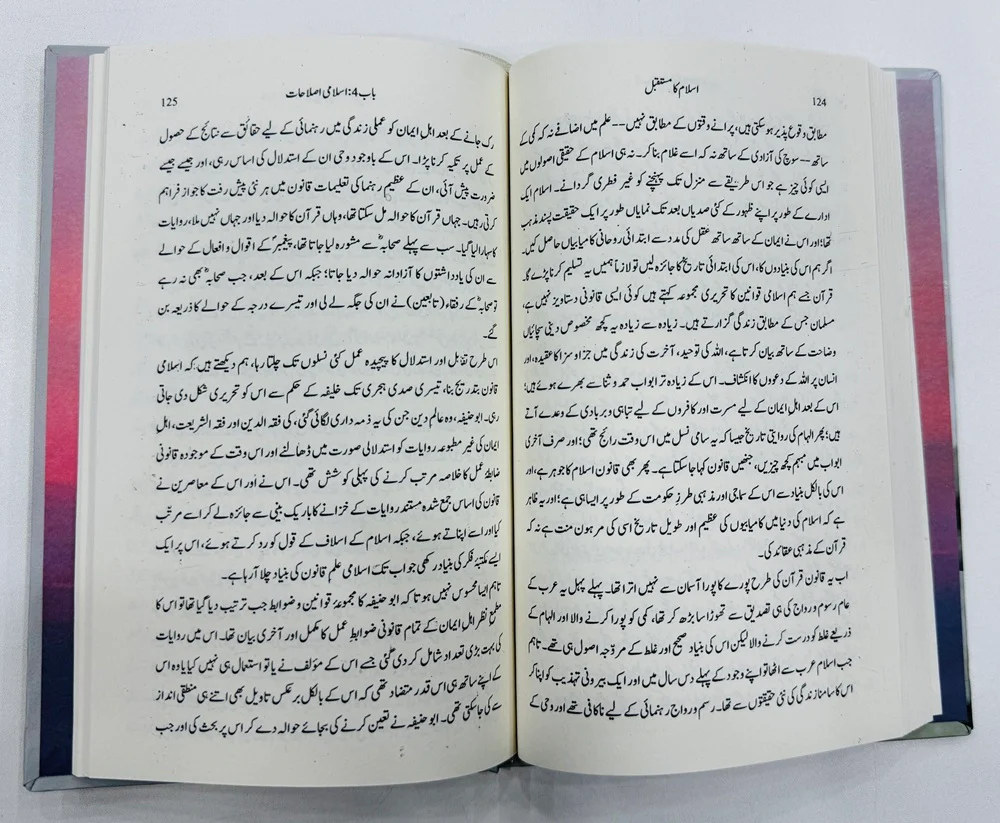 124
اسلام کا مستقبل
مطابق وقوع پذیر ہو سکتی ہیں، پرانے وقتوں کے مطابق نہیں -- علم میں اضافے نہ کہ کمی کے
ساتھ -- سوچ کی آزادی کے ساتھ نہ کہ اسے غلام بنا کر۔ نہ ہی اسلام کے حقیقی اصولوں میں
ایسی کوئی چیز ہے جو اس طریقے سے منزل تک پہنچنے کو غیر فطری گردانے۔ اسلام ایک
ادارے کے طور پر اپنے ظہور کے کئی صدیاں بعد تک نمایاں طور پر ایک حقیقت پسند مذہب
تھا؛ اور اس نے ایمان کے ساتھ ساتھ عقل کی مدد سے ابتدائی روحانی کامیابیاں حاصل کیں۔
اگر ہم اس کی بنیادوں کا، اس کی ابتدائی تاریخ کا جائزہ لیں تو لازماً ہمیں یہ تسلیم کرنا پڑے گا۔
قرآن جسے ہم اسلامی قوانین کا تحریری مجموعہ کہتے ہیں کوئی ایسی قانونی دستاویز نہیں ہے،
مسلمان جس کے مطابق زندگی گزارتے ہیں۔ زیادہ سے زیادہ یہ کچھ مخصوص دینی سچائیاں
وضاحت کے ساتھ بیان کرتا ہے، اللہ کی توحید، آخرت کی زندگی میں جزا و سزا کا عقیدہ، اور
انسان پر اللہ کے دعووں کا انکشاف۔ اس کے زیادہ تر ابواب حمد و ثنا سے بھرے ہوئے ہیں؛
اس کے بعد اہل ایمان کے لیے مسرت اور کافروں کے لیے تباہی و بربادی کے وعدے آتے
ہیں؛ پھر الہام کی روایتی تاریخ جیسا کہ یہ سامی نسل میں اس وقت رائج تھی؛ اور صرف آخری
ابواب میں مبہم کچھ چیزیں، جنھیں قانون کہا جا سکتا ہے۔ پھر بھی قانون اسلام کا جوہر ہے، اور
اس کی بالکل بنیاد سے اس کے سماجی اور مذہبی طرز حکومت کے طور پر ایسا ہی ہے؛ اور یہ ظاہر
ہے کہ اسلام کی دنیا میں کامیابیوں کی عظیم اور طویل تاریخ اسی کی مرہون منت ہے نہ کہ
قرآن کے مذہبی عقائد کی۔
اب یہ قانون قرآن کی طرح پورے کا پورا آسمان سے نہیں اترا تھا۔ پہلے پہل یہ عرب کے
عام رسوم و رواج کی ہی تصدیق سے تھوڑا سا بڑھ کر تھا، کمی کو پورا کرنے والا اور الہام کے
ذریعے غلط کو درست کرنے والا لیکن اس کی بنیاد صحیح اور غلط کے مروّجہ اصول ہی تھے۔ تاہم
جب اسلام عرب سے اٹھا تو اپنے وجود کے پہلے دس سال میں اور ایک بیرونی تہذیب کو اپنا کر
اس کا سامنا زندگی کی نئی حقیقتوں سے تھا۔ رسم و رواج رہنمائی کے لیے ناکافی تھے اور وحی کے
باب 4: اسلامی اصلاحات
125
رک جانے کے بعد اہل ایمان کو عملی زندگی میں رہنمائی کے لیے حقائق سے نتائج کے حصول
کے عمل پر تکیہ کرنا پڑا۔ اس کے باوجود وحی ان کے استدلال کی اساس رہی، اور جیسے جیسے
ضرورت پیش آئی، ان کے عظیم رہنما کی تعلیمات قانون میں ہر نئی پیش رفت کا جواز فراہم
کرتی رہیں۔ جہاں قرآن کا حوالہ مل سکتا تھا، وہاں قرآن کا حوالہ دیا اور جہاں نہیں ملا، روایات
کا سہارا لیا گیا۔ سب سے پہلے صحابہؓ سے مشورہ لیا جاتا تھا، پیغمبرؐ کے اقوال و افعال کے حوالے
سے ان کی یادداشتوں کا آزادانہ حوالہ دیا جاتا؛ جبکہ اس کے بعد، جب صحابہؓ بھی نہ رہے
تو صحابہؓ کے رفقاء (تابعین) نے ان کی جگہ لے لی اور تیسرے درجہ کے حوالے کا ذریعہ بن
گئے۔
اس طرح تقابل اور استدلال کا پیچیدہ عمل کئی نسلوں تک چلتا رہا، ہم دیکھتے ہیں کہ اسلامی
قانون بتدریج بنا، تیسری صدی ہجری تک خلیفہ کے حکم سے اس کو تحریری شکل دی جاتی
رہی۔ ابو حنیفہ، وہ عالم دین جن کی یہ ذمہ داری لگائی گئی، کی فقہ الدین اور فقہ الشریعت، اہل
ایمان کی غیر مطبوعہ روایات کو استدلالی صورت میں ڈھالنے اور اس وقت کے موجودہ قانونی
ضابطۂ عمل کا خلاصہ مرتب کرنے کی پہلی کوشش تھی۔ اس نے اور اس کے معاصرین نے
قانون کی اساس جمع شدہ مستند روایات کے خزانے کا باریک بینی سے جائزہ لے کر اسے مرتب
کیا اور اسے اپناتے ہوئے، جبکہ اسلام کے اسلاف کے قول کو رد کرتے ہوئے، اس پر ایک
ایسے مکتبۂ فکر کی بنیاد رکھی جو اب تک اسلامی علم قانون کی بنیاد چلا آ رہا ہے۔
تاہم ایسا محسوس نہیں ہوتا کہ ابو حنیفہ کا مجموعۂ قوانین و ضوابط جب ترتیب دیا گیا تھا تو اس کا
مطمح نظر اہل ایمان کے تمام قانونی ضوابط عمل کا مکمل اور آخری بیان تھا۔ اس میں روایات
کی بہت بڑی تعداد شامل کر دی گئی جسے اس کے مؤلف نے یا تو استعمال ہی نہیں کیا یا وہ اس
کے اپنے ساتھ ہی اس قدر متضاد تھی کہ اس کے بالکل برعکس تاویل بھی اتنے ہی منطقی انداز
سے کی جا سکتی تھی۔ ابو حنیفہ نے تعین کرنے کی بجائے حوالہ دے کر اس پر بحث کی اور جب